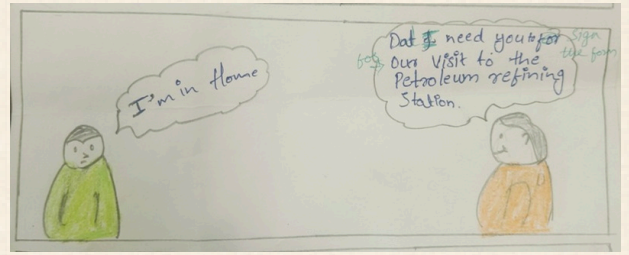 I'm in Home
Dad I need you to sign the form
for our visit to the
Petroleum refining
Station.